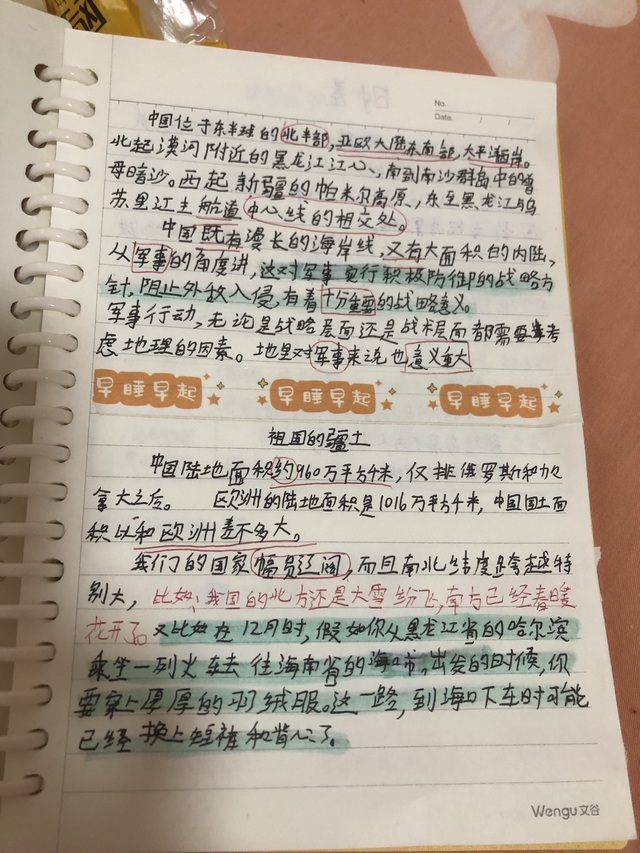 No.
Date. / /
中国位于东半球的北半部,亚欧大陆东南部,太平洋西岸。
北起漠河附近的黑龙江江心、南到南沙群岛中的曾
母暗沙。西起新疆的帕米尔高原,东至黑龙江与乌
苏里江主航道中心线的相交处。
中国既有漫长的海岸线,又有大面积的内陆,
从军事的角度讲,这对军事实行积极防御的战略方
针,阻止外敌入侵,有着十分重要的战略意义。
军事行动,无论是战略层面还是战术层面都需要考
虑地理的因素。地里对军事来说也意义重大
早睡早起 早睡早起 早睡早起
祖国的疆土
中国陆地面积约960万平方千米,仅排俄罗斯和加
拿大之后。 欧洲的陆地面积是1016万平方千米,中国国土面
积以和欧洲差不多大。
我们的国家幅员辽阔,而且南北纬度跨越特
别大,比如,我国的北方还是大雪纷飞,南方已经春暖
花开了。又比如在12月时,假如你从黑龙江省的哈尔滨
乘坐一列火车去往海南省的海口市,出发的时候,你
要穿上厚厚的羽绒服。这一路,到海口下车时可能
已经换上短裤和背心了。
Wengu 文谷